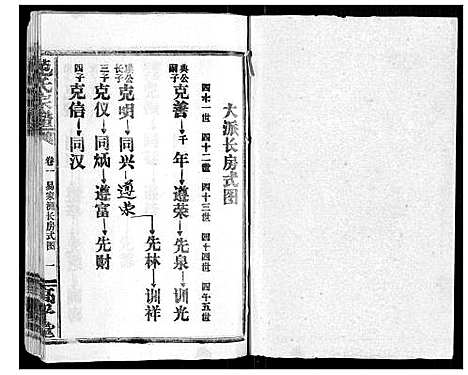 大派长房式图
四十一世 四十二世 四十三世 四十四世 四十五世
典公嗣子 克善 千年 遵荣 先泉 训光
典公长子 克明 同兴 遵荣 先林 训祥
三子 克仪 同炳 遵富 先财
四子 克信 同汉
范氏宗谱
卷一 易家洲长房式图 一
高平堂